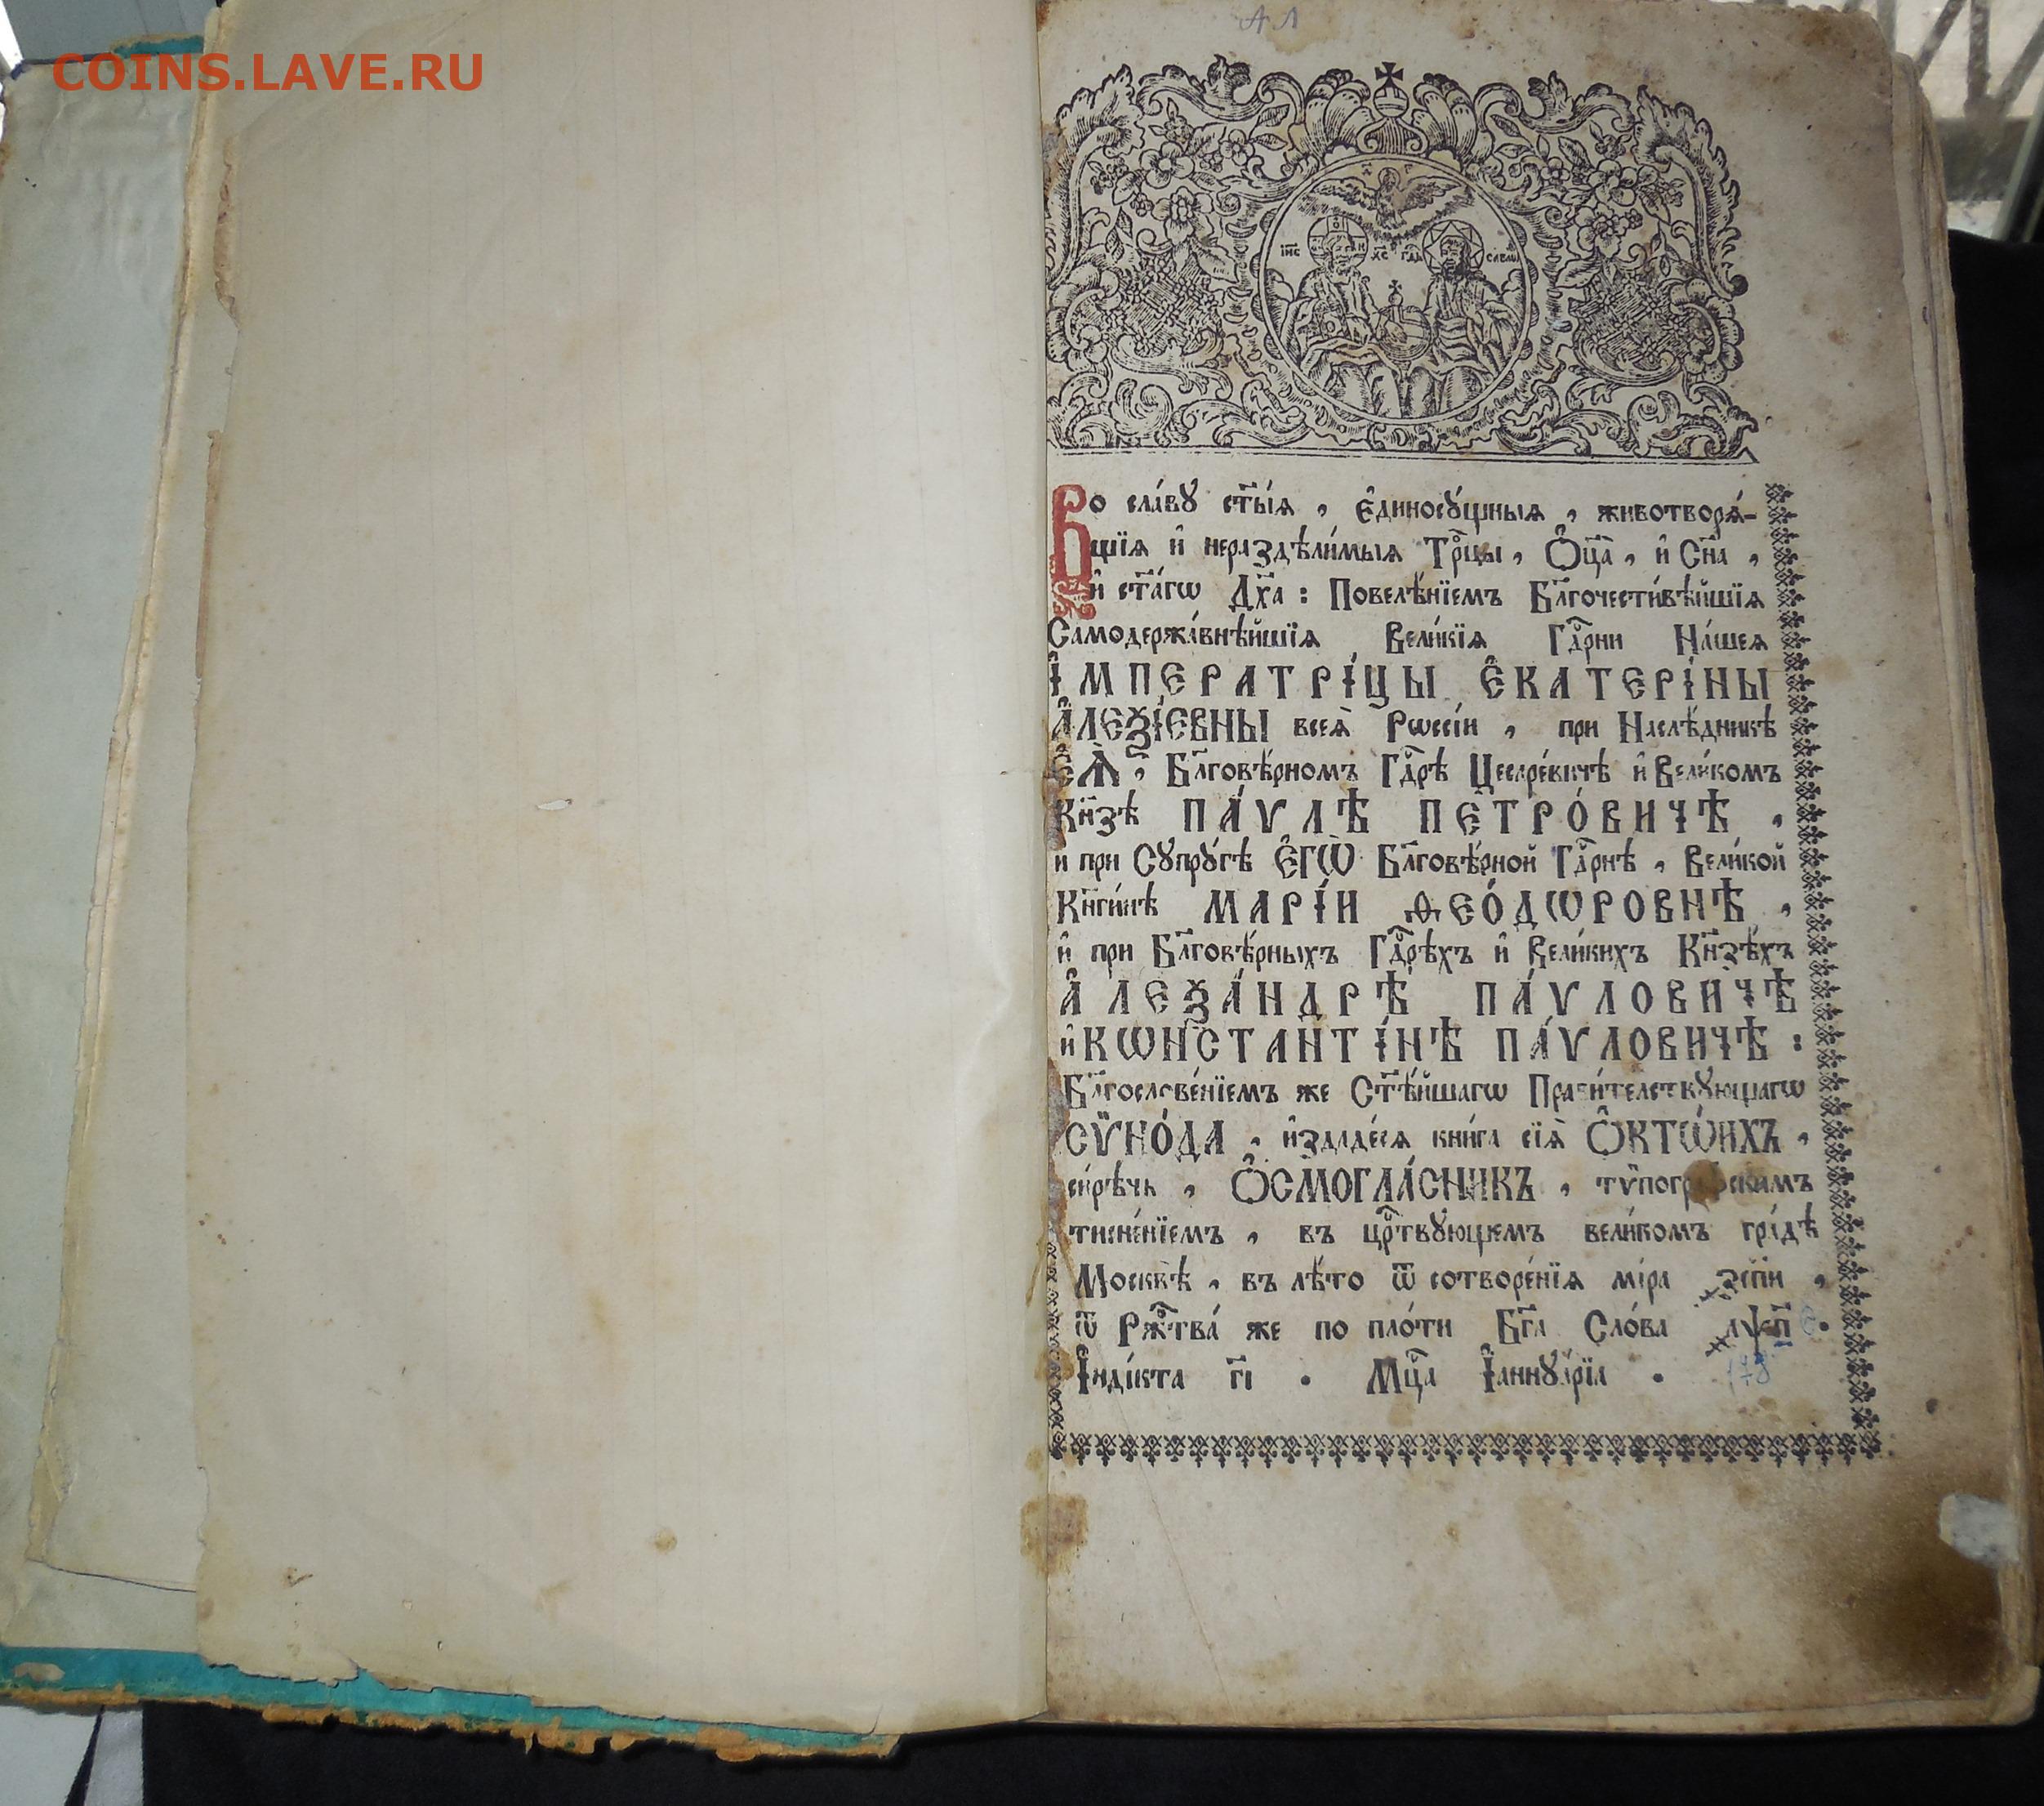 COINS.LAVE.RU
А Л
І҆и҃с Х҃с Гд҃ь
Во сла́вꙋ ст҃ы́ѧ , є҆диносꙋ́щныѧ , животворѧ́-
щїѧ и҆ нераздѣли́мыѧ Трⷪ҇цы , Ѻ҆ц҃а̀ , и҆ Сн҃а ,
и҆ ст҃а́гѡ Дх҃а : Повелѣ́нїемъ Бл҃гочести́вѣйшїѧ
Самодержа́внѣйшїѧ Вели́кїѧ Гдⷭ҇рни На́шеѧ
І҆МПЕРАТРІ́ЦЫ Є҆КАТЕРІ́НЫ
А҆ЛЕѮІ́ЕВНЫ всеѧ̀ Рѡссі́и , при Наслѣ́дникѣ
Є҆Ѧ̀ , Бл҃говѣ́рномъ Гдⷭ҇рѣ Цесаре́вичѣ и҆ Вели́комъ
Кн҃зѣ ПА́ѴЛѢ ПЕТРО́ВИЧѢ ,
и при Сꙋпрꙋ́гѣ Є҆ГѠ̀ Бл҃говѣ́рной Гдⷭ҇рнѣ , Вели́кой
Кн҃ги́нѣ МАРІ́И Ѳ҆ЕО́ДѠРОВНѢ ,
и҆ при Бл҃говѣ́рныхъ Гдⷭ҇рѣхъ и҆ Вели́кихъ Кн҃зѣ́хъ
А҆ЛЕѮА́НДРѢ ПА́ѴЛОВИЧѢ
и҆ КѠНСТАНТІ́НѢ ПА́ѴЛОВИЧѢ :
Бл҃гослове́нїемъ же Ст҃ѣ́йшагѡ Прави́телствꙋющагѡ
СѶНО́ДА , и҆здаде́сѧ кни́га сїѧ̀ Ѻ҆КТѠ́ИХЪ ,
си́рѣчь , Ѻ҆СМОГЛА́СНИКЪ , тѷпогра́фскимъ
тисне́нїемъ , въ црⷭ҇твꙋющемъ вели́комъ гра́дѣ
Москвѣ̀ , въ лѣ́то ѿ сотворе́нїѧ мі́ра
ѿ Ржⷭ҇тва̀ же по пло́ти Бг҃а Сло́ва
І҆нді́кта г҃і . Мцⷭ҇а І҆аннꙋа́рїа . 178